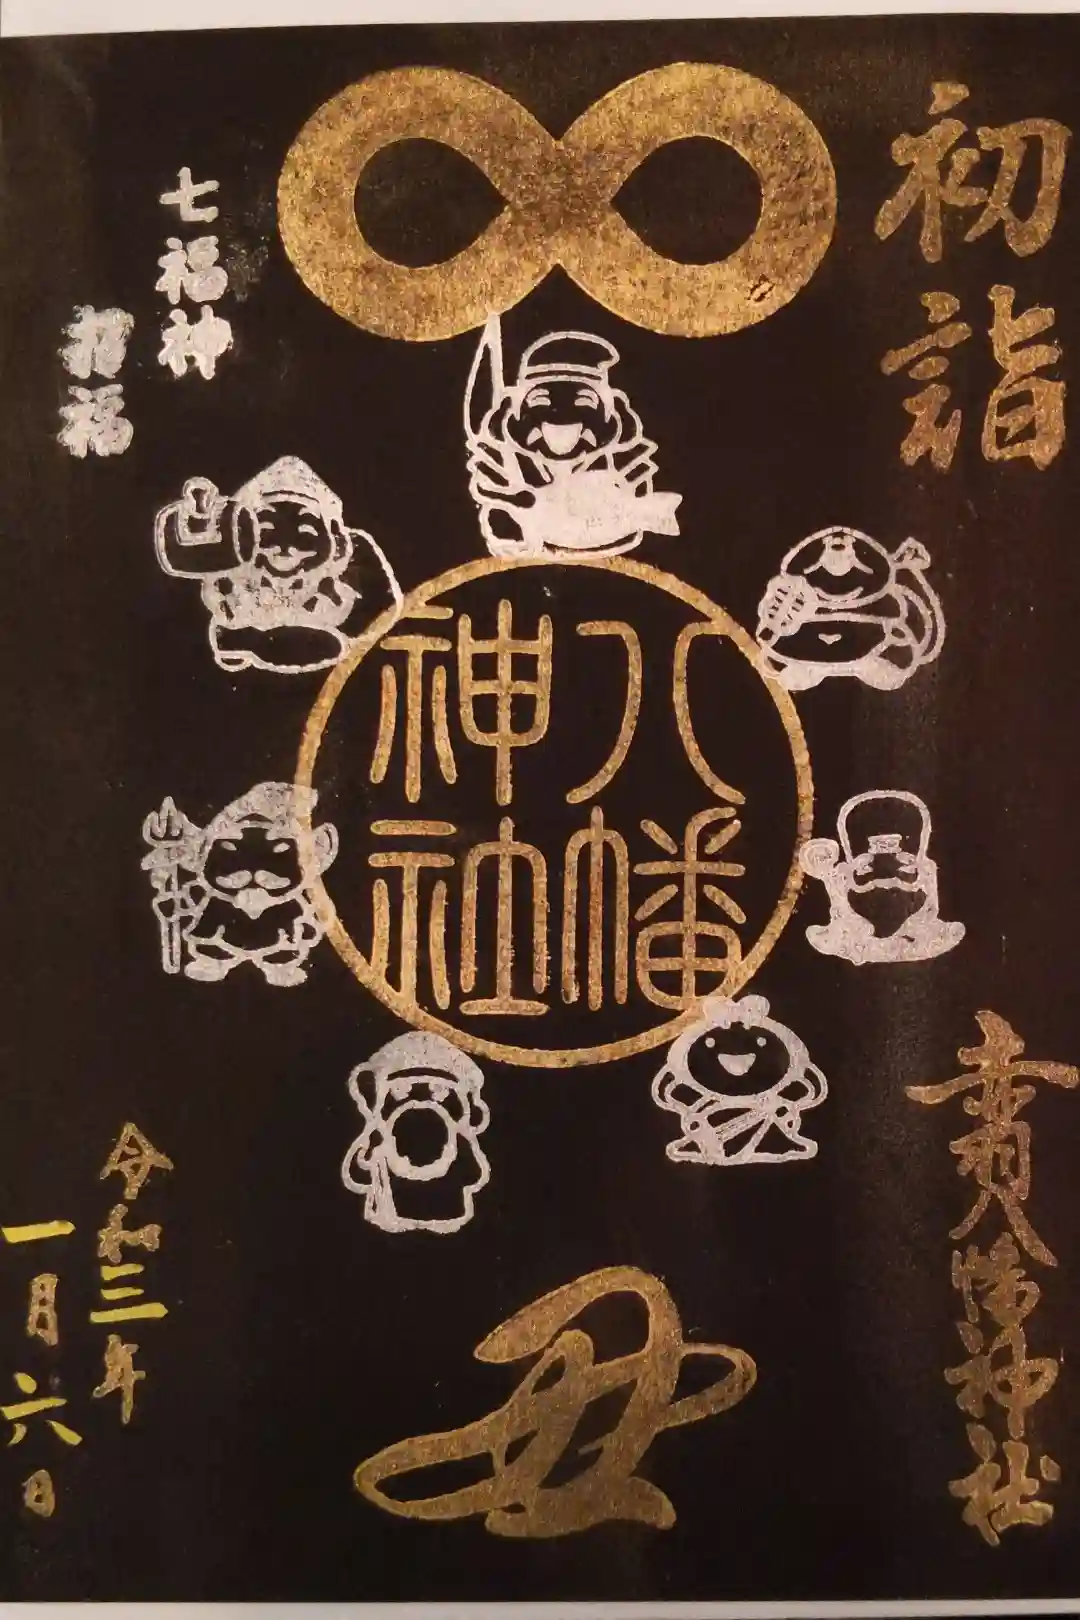 初詣
赤羽八幡神社
八幡
神社
丑
七福神
招福
令和三年
一月六日